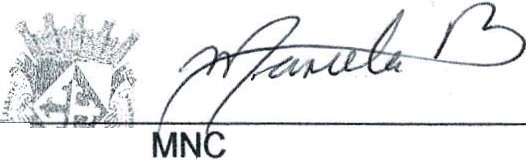 Manuela B
MNC